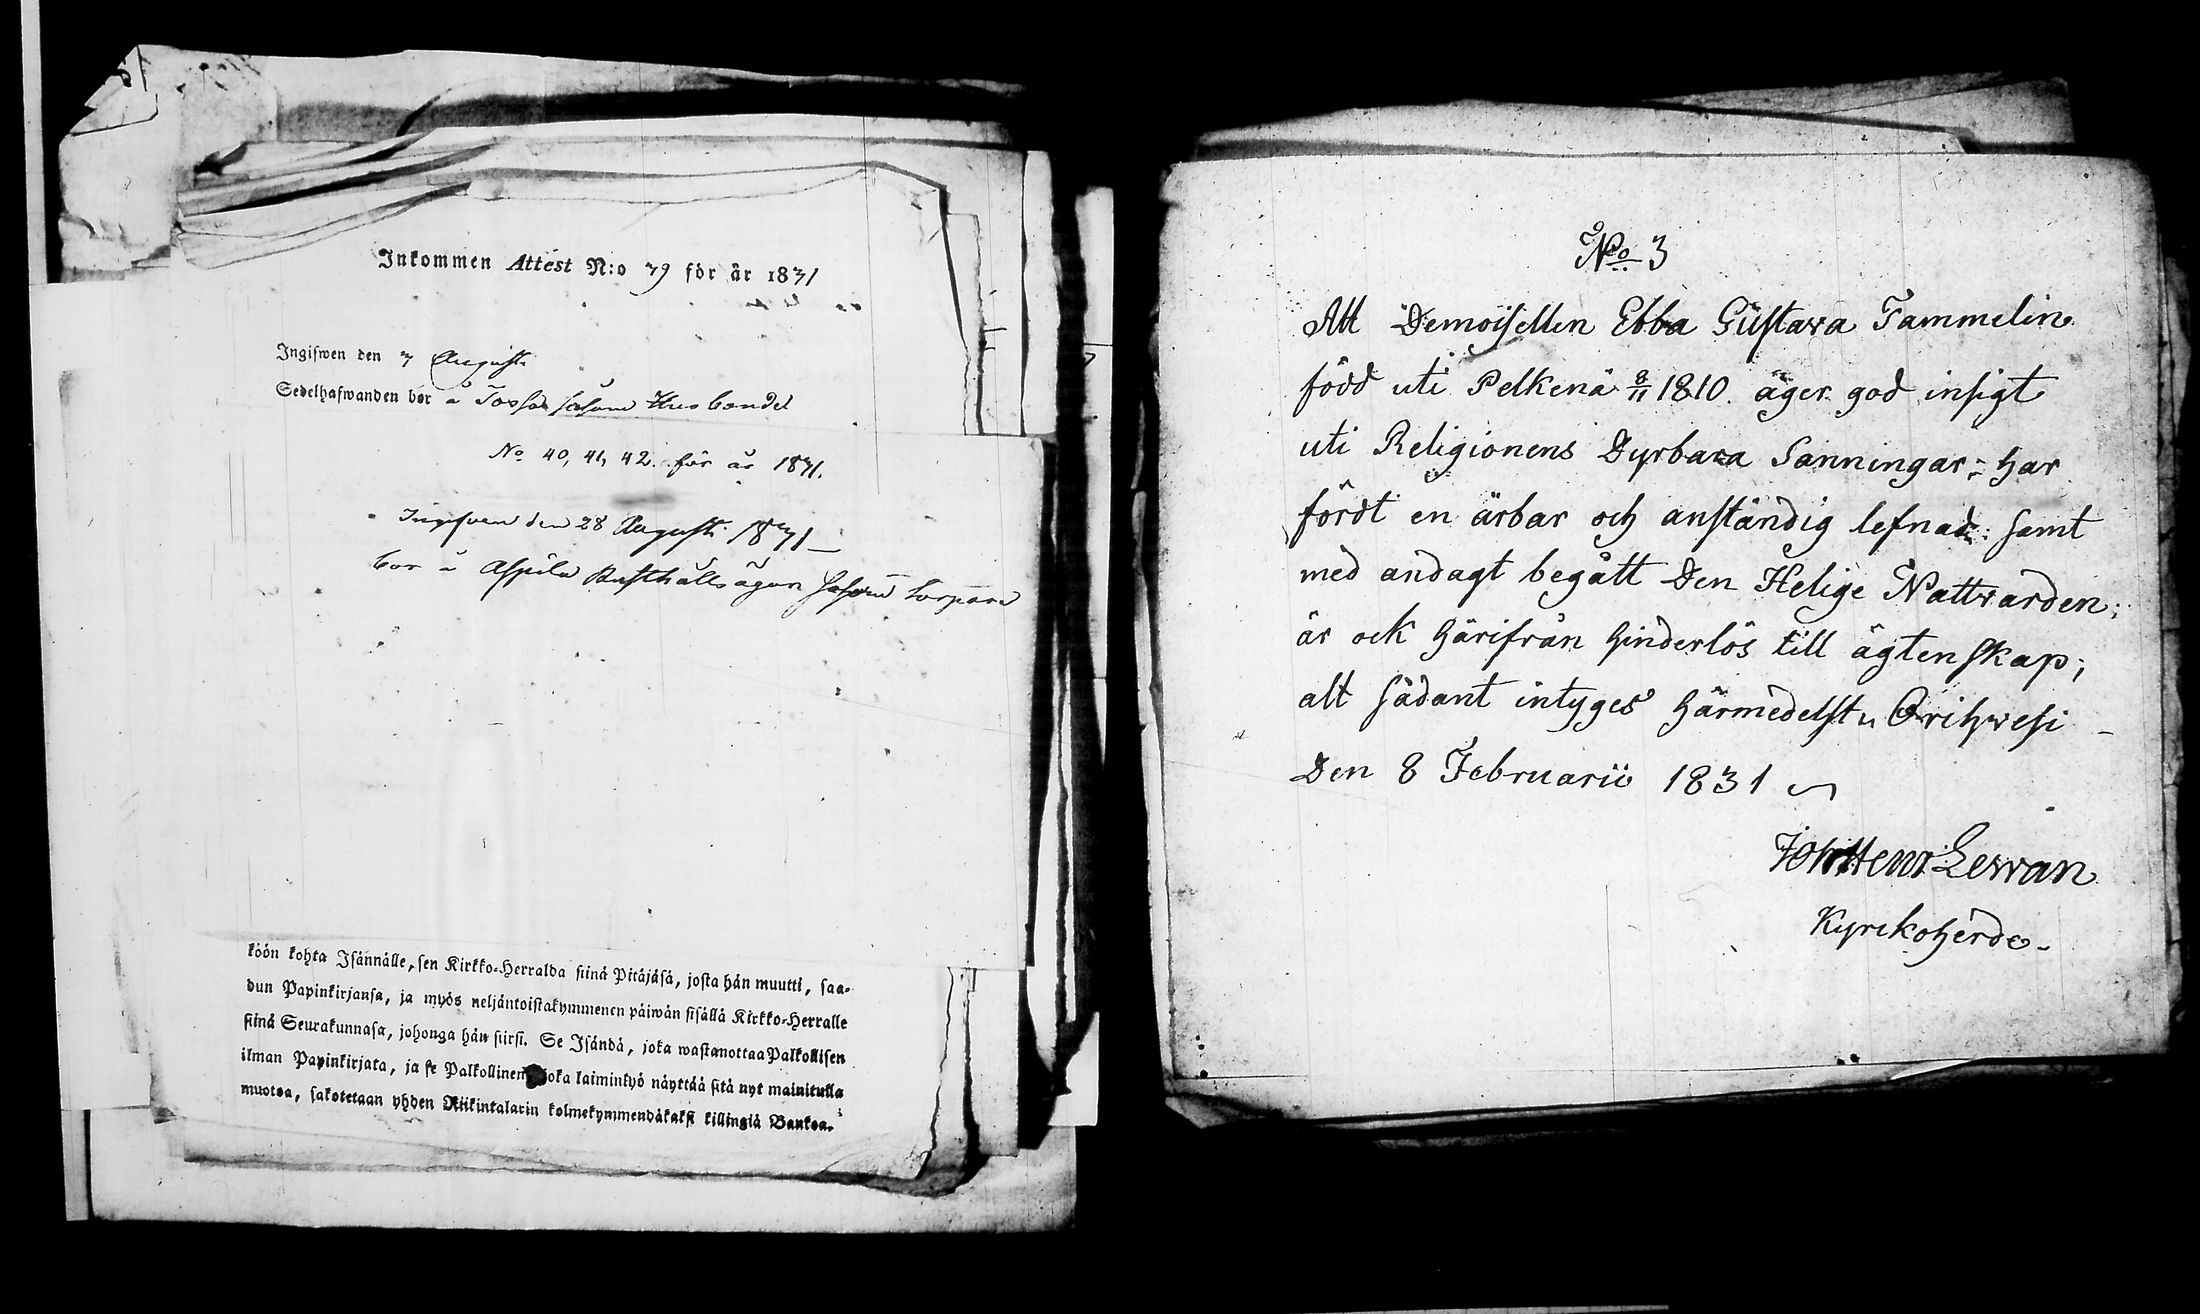 Inkommen Attest N:o 79 för år 1831
Ingifwen den 7 Augusti
Sedelhafwanden bor å
No 40, 41, 42. för år 1831.
Ingifven den 28 Augusti 1831
bor å Rusthålls ägare torpare
köön kohta Isännälle, sen Kirkko-Herralda siinä Pitäjäsä, josta hän muutti, saa-
dun Papinkirjansa, ja myös neljäntoistakymmenen päiwän sisällä Kirkko-Herralle
siinä Seurakunnasa, johonga hän siirsi. Se Isändä, joka wastanottaa Palkollisen
ilman Papinkirjata, ja se Palkollinen joka laiminlyö näyttää sitä nyt mainitulla
muotoa, sakotetaan yhden Riikintalarin kolmekymmendäkaksi killingiä Bankoa.
No 3
Att Demoisellen Ebba Gustava Tammelin
född uti Pelkenä 8/11 1810. äger god insigt
uti Religionens Dyrbara Sanningar; har
fördt en ärbar och anständig lefnad: samt
med andagt begått Den Helige Nattvarden;
är ock härifrån hinderlös till ägtenskap;
alt sådant intyges härmedelst. Orihvesi
Den 8 Februarii 1831
Joh Henr Levan
Kyrckoherde.